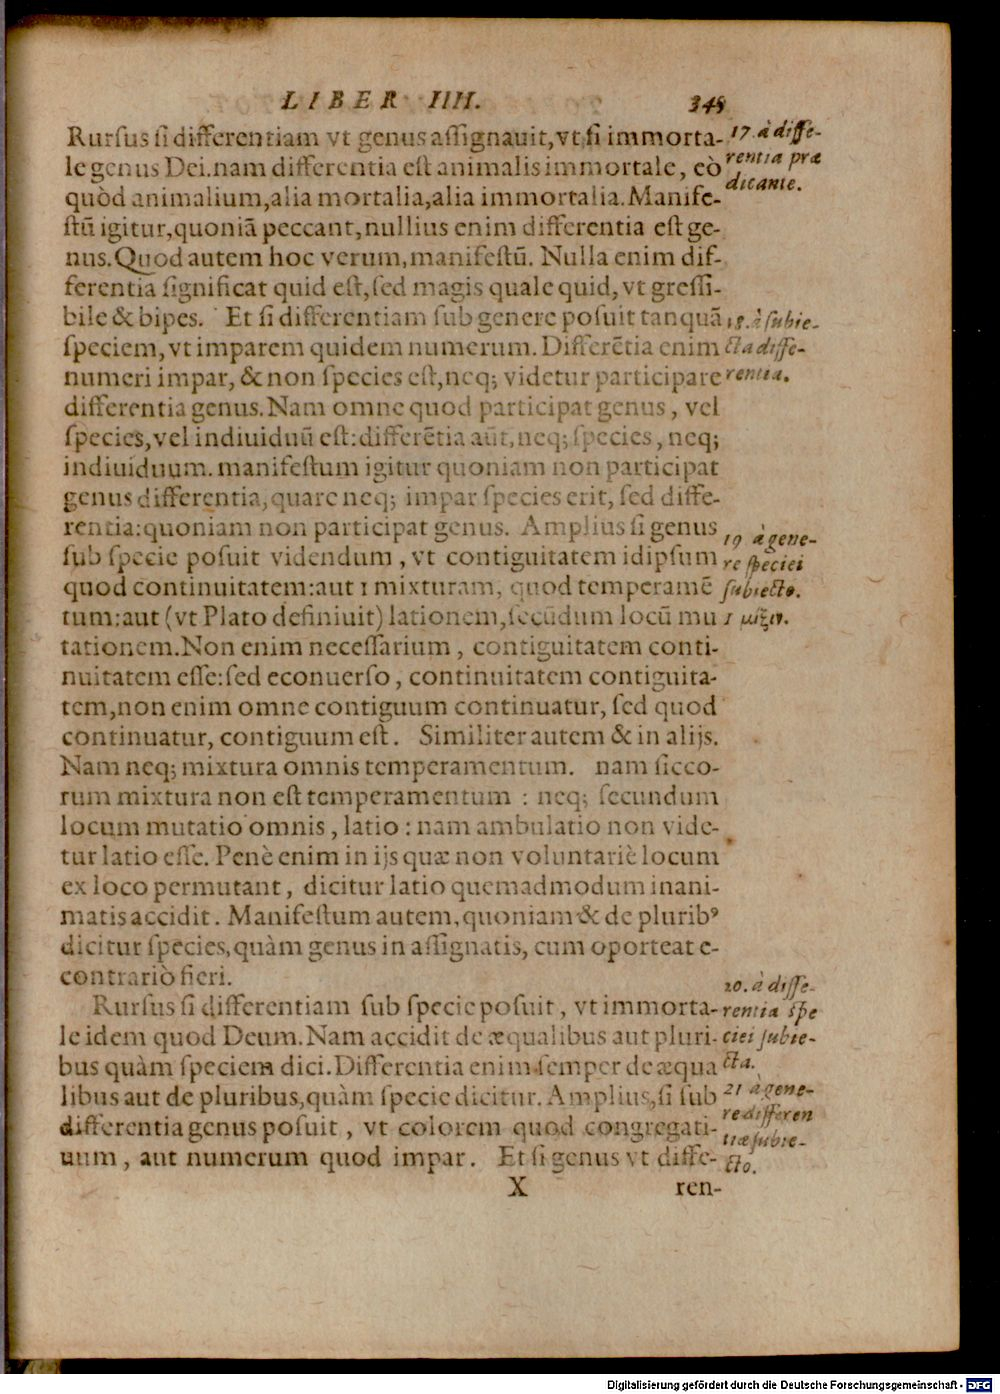 LIBER IIII. 345
Rursus si differentiam vt genus assignauit, vt si immorta-
le genus Dei. nam differentia est animalis immortale, eò
quòd animalium, alia mortalia, alia immortalia. Manife-
stũ igitur, quoniã peccant, nullius enim differentia est ge-
nus. Quod autem hoc verum, manifestũ. Nulla enim dif-
ferentia significat quid est, sed magis quale quid, vt gressi-
bile & bipes. Et si differentiam sub genere posuit tanquã
speciem, vt imparem quidem numerum. Differẽtia enim
numeri impar, & non species est, neq; videtur participare
differentia genus. Nam omne quod participat genus, vel
species, vel indiuiduũ est: differẽtia aũt, neq; species, neq;
indiuiduum. manifestum igitur quoniam non participat
genus differentia, quare neq; impar species erit, sed diffe-
rentia: quoniam non participat genus. Amplius si genus
sub specie posuit videndum, vt contiguitatem idipsum
quod continuitatem: aut 1 mixturam, quod temperamẽ
tum: aut (vt Plato definiuit) lationem, secũdum locũ mu
tationem. Non enim necessarium, contiguitatem conti-
nuitatem esse: sed econuerso, continuitatem contiguita-
tem, non enim omne contiguum continuatur, sed quod
continuatur, contiguum est. Similiter autem & in alijs.
Nam neq; mixtura omnis temperamentum. nam sicco-
rum mixtura non est temperamentum : neq; secundum
locum mutatio omnis, latio : nam ambulatio non vide-
tur latio esse. Penè enim in ijs quæ non voluntariè locum
ex loco permutant, dicitur latio quemadmodum inani-
matis accidit. Manifestum autem, quoniam & de pluribꝰ
dicitur species, quàm genus in assignatis, cum oporteat e-
contrariò fieri.
Rursus si differentiam sub specie posuit, vt immorta-
le idem quod Deum. Nam accidit de æqualibus aut pluri-
bus quàm speciem dici. Differentia enim semper de æqua
libus aut de pluribus, quàm specie dicitur. Amplius, si sub
differentia genus posuit, vt colorem quod congregati-
uum, aut numerum quod impar. Et si genus vt diffe-
X ren-
17. à diffe-
rentia præ
dicante.
18. à subie-
cta diffe-
rentia.
19 à gene-
re speciei
subiecto.
1 μίξιν.
20. à diffe-
rentia spe
ciei subie-
cta.
21 à gene-
re differen
tiæ subie-
cto.
Digitalisierung gefördert durch die Deutsche Forschungsgemeinschaft - DFG